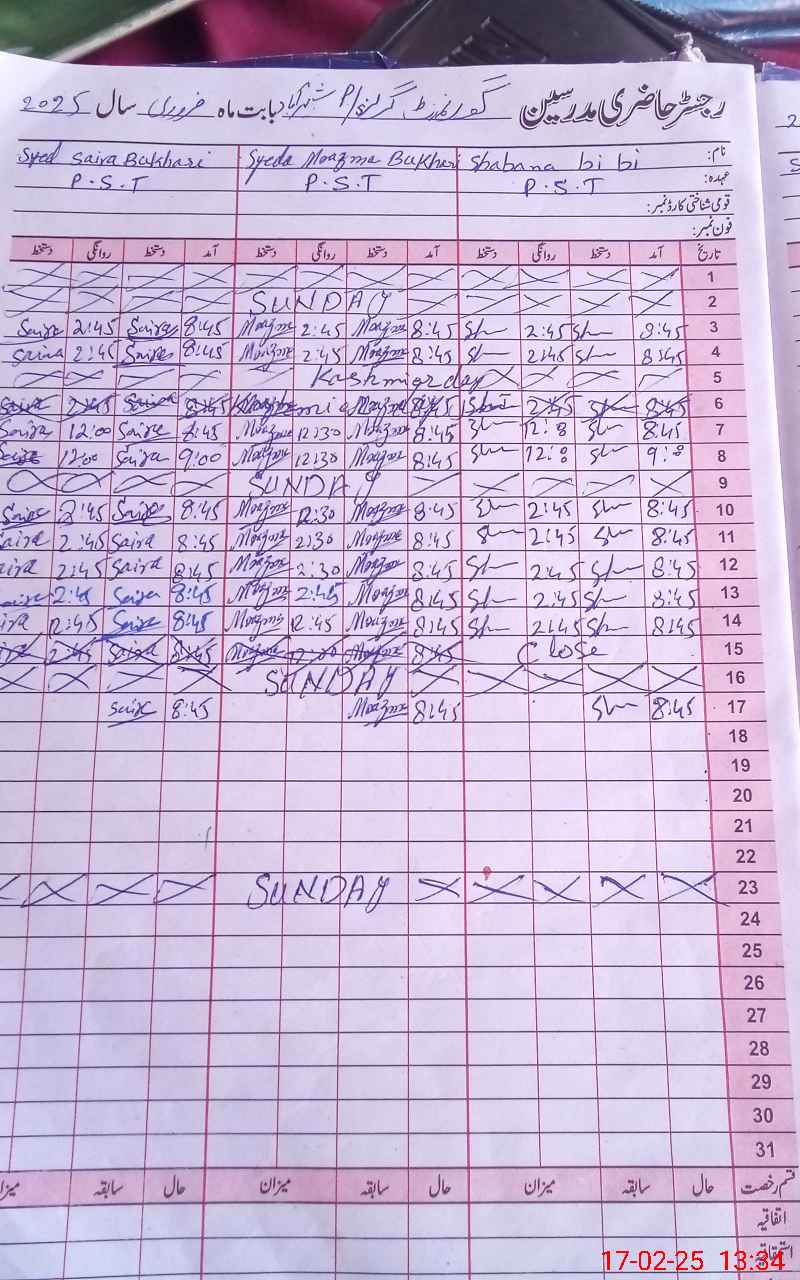 رجسٹر حاضری مدرسین گورنمنٹ گرلز P/ بابت ماہ فروری سال 2025
نام: Shabana bi bi Syeda Moazma Bukhari Syed Saira Bukhari
عہدہ: P.S.T P.S.T P.S.T
قومی شناختی کارڈ نمبر:
فون نمبر:
تاریخ آمد دستخط روانگی دستخط آمد دستخط روانگی دستخط آمد دستخط روانگی دستخط
1
2 SUNDAY
3 8:45 Sh 2:45 Sh 8:45 Moazma 2:45 Moazma 8:45 Saira 2:45 Saira
4 8:45 Sh 2:45 Sh 8:45 Moazma 2:45 Moazma 8:45 Saira 2:45 Saira
5 Kashmier day
6 8:45 Sh 2:45 8:45 Moazma 8:45 Saira 2:45 Saira
7 8:45 Sh Sh 8:45 Moazma 12:30 Moazma 8:45 Saira 12:00 Saira
8 Sh Sh 8:45 Moazma 12:30 Moazma 9:00 Saira 12:00 Saira
9 SUNDAY
10 8:45 Sh 2:45 Sh 8:45 Moazma 2:30 Moazma 8:45 Saira 2:45 Saira
11 8:45 Sh 2:45 Sh 8:45 Moazma 2:30 Moazma 8:45 Saira 2:45 aira
12 8:45 Sh 2:45 Sh 8:45 Moazma 2:30 Moazma 8:45 Saira 2:45 aira
13 8:45 Sh 2:45 Sh 8:45 Moazma 2:45 Moazma 8:45 Saira 2:45 aira
14 8:45 Sh 2:45 Sh 8:45 Moazma 12:45 Moazma 8:45 Saira 12:45 ira
15 Close 8:45 Moazma 12:00 Moazma 8:45 Saira 2:45
16 SUNDAY
17 8:45 Sh 8:45 Moazma 8:45 Saira
18
19
20
21
22
23 SUNDAY
24
25
26
27
28
29
30
31
قسم رخصت حال سابقہ میزان حال سابقہ میزان حال سابقہ میزان
اتفاقیہ
استحقاقیہ
17-02-25 13:34